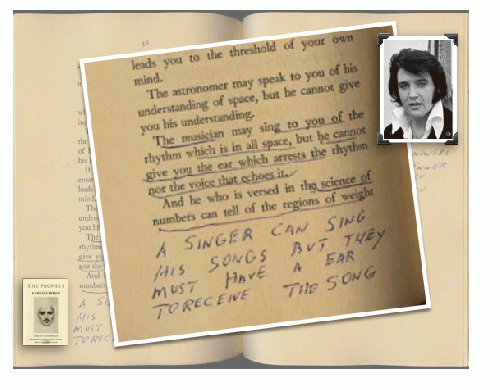 56
leads you to the threshold of your own
mind.
The astronomer may speak to you of his
understanding of space, but he cannot give
you his understanding.
The musician may sing to you of the
rhythm which is in all space, but he cannot
give you the ear which arrests the rhythm
nor the voice that echoes it.
And he who is versed in the science of
numbers can tell of the regions of weight
A SINGER CAN SING
HIS SONGS BUT THEY
MUST HAVE A EAR
TORECEIVE THE SONG
THE PROPHET